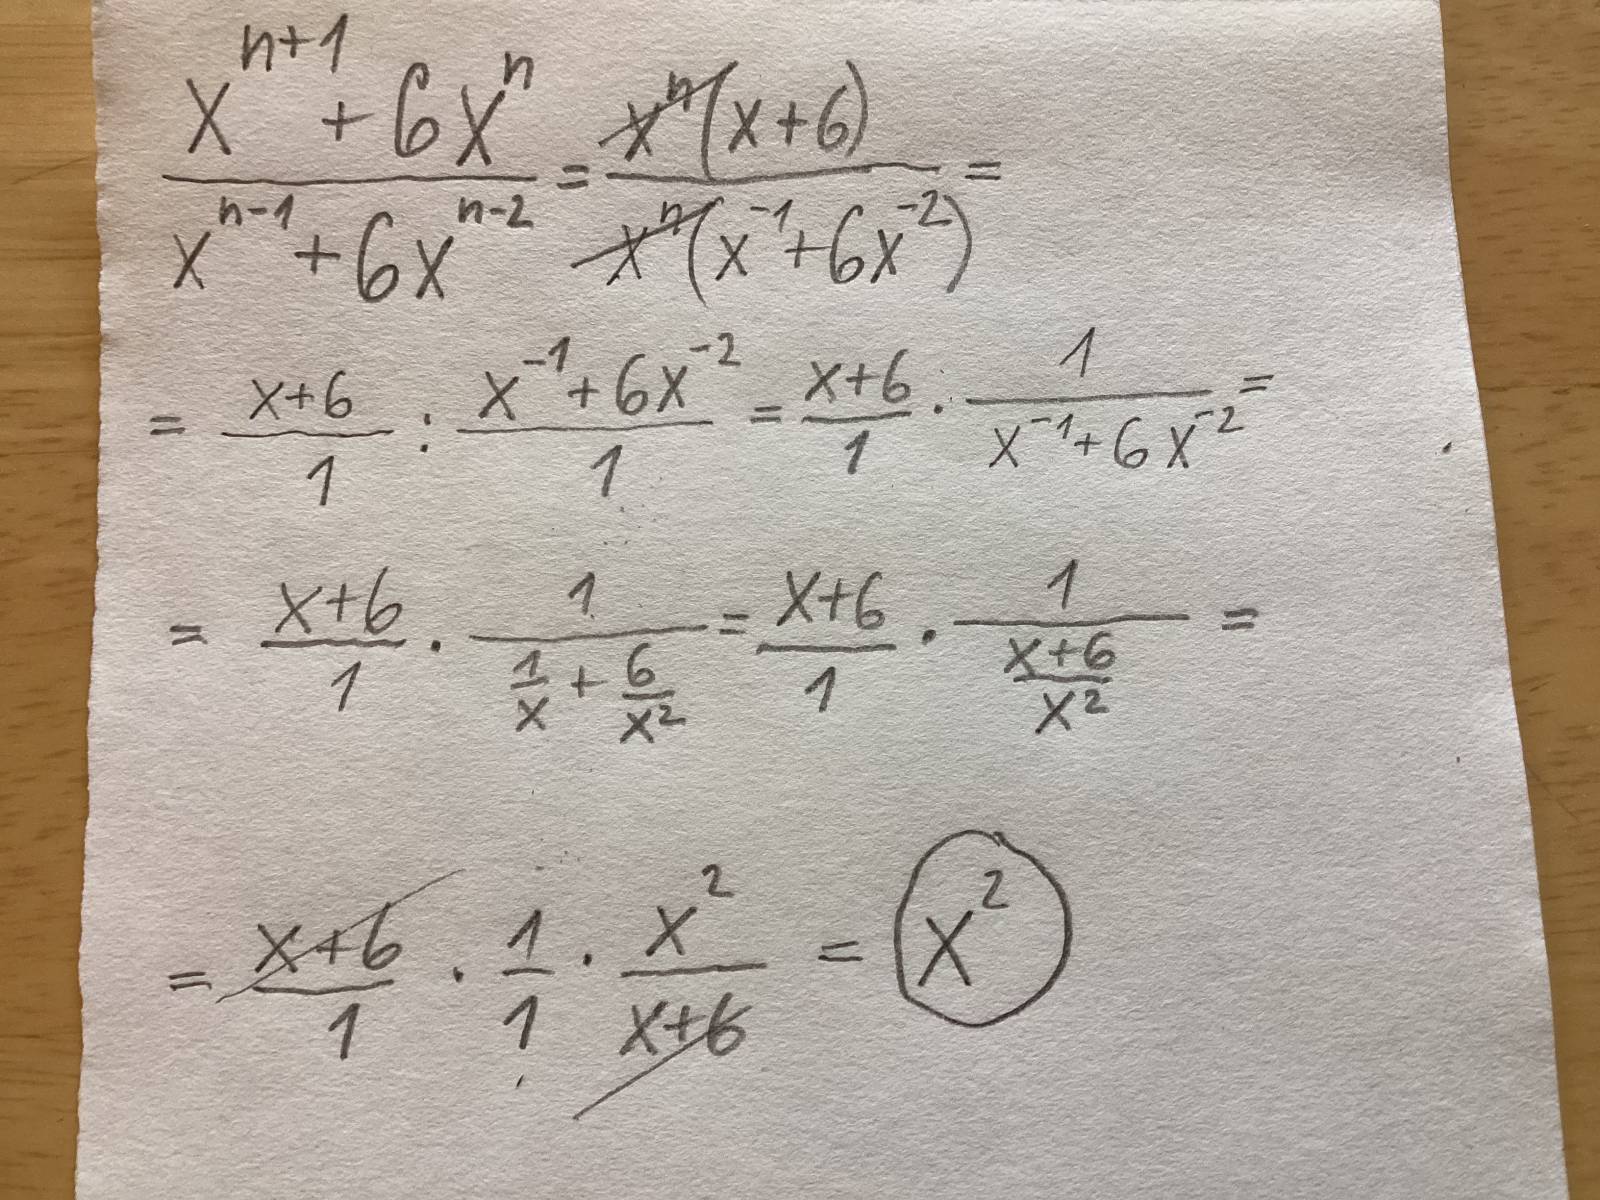 \frac{x^{n+1} + 6x^n}{x^{n-1} + 6x^{n-2}} = \frac{x^n(x+6)}{x^n(x^{-1} + 6x^{-2})} =
= \frac{x+6}{1} : \frac{x^{-1} + 6x^{-2}}{1} = \frac{x+6}{1} \cdot \frac{1}{x^{-1} + 6x^{-2}} =
= \frac{x+6}{1} \cdot \frac{1}{\frac{1}{x} + \frac{6}{x^2}} = \frac{x+6}{1} \cdot \frac{1}{\frac{x+6}{x^2}} =
= \frac{x+6}{1} \cdot \frac{1}{1} \cdot \frac{x^2}{x+6} = x^2